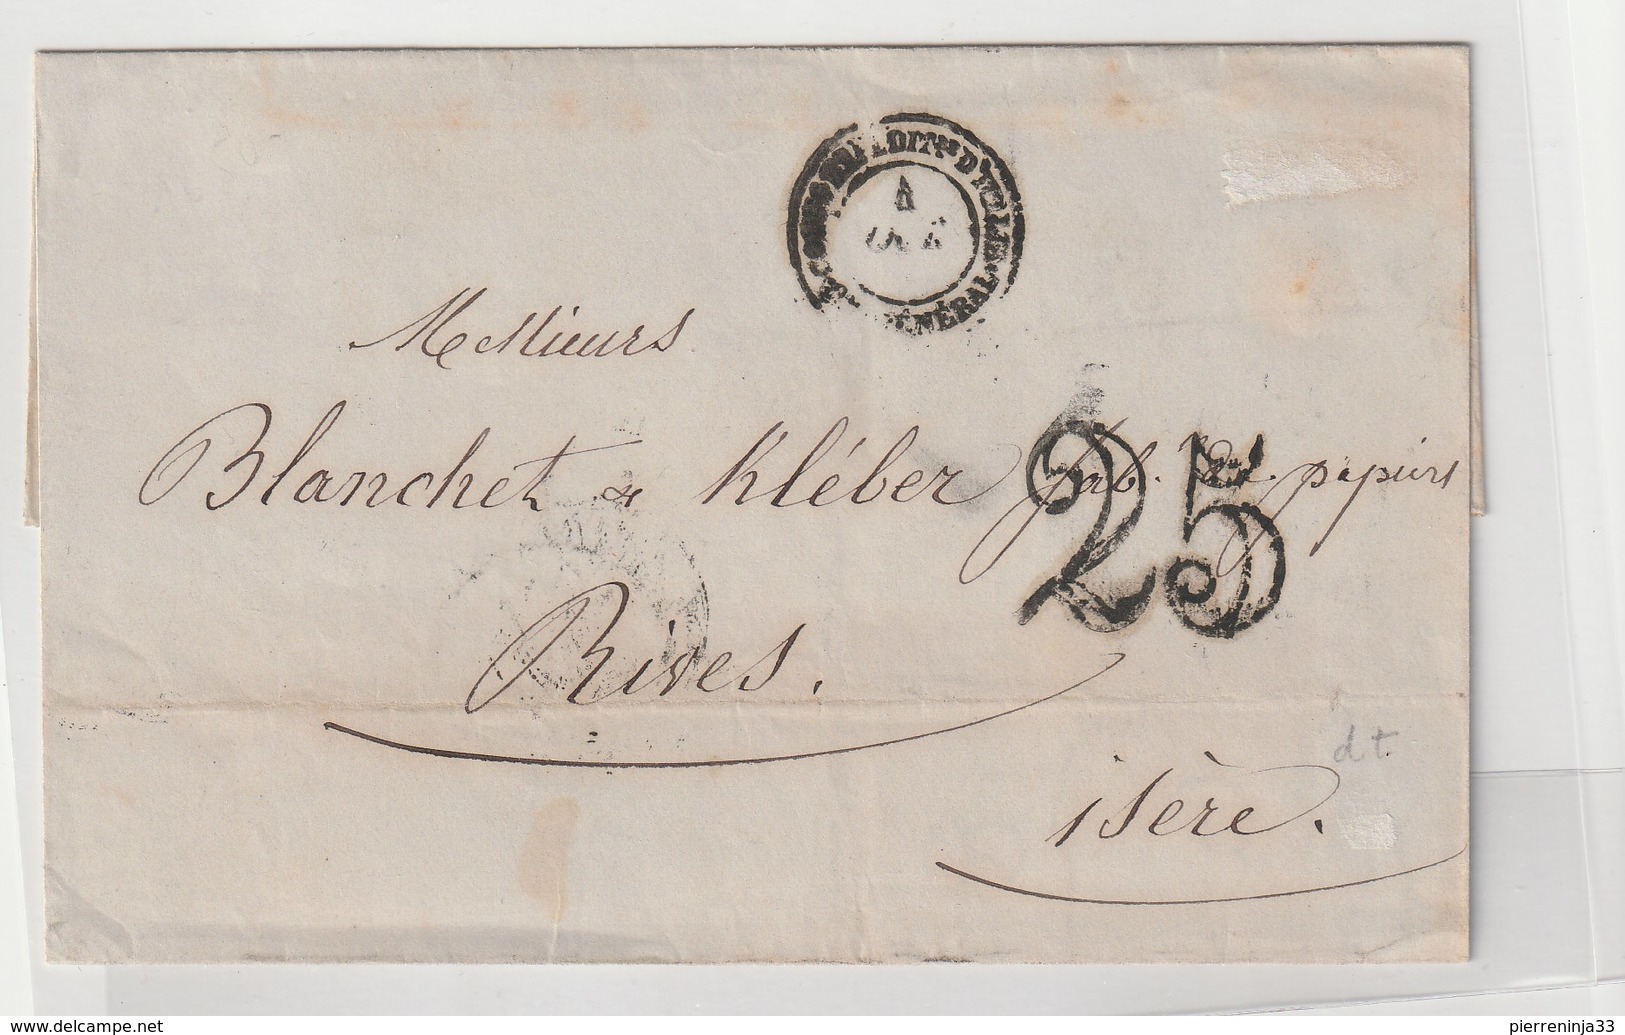 CORPS EXPÉDIT.re D'ITALIE
GÉNÉRAL
Messieurs
Blanchet & Kléber fab. de papiers
25
Rives.
dt
isère.
www.delcampe.net
pierreninja33